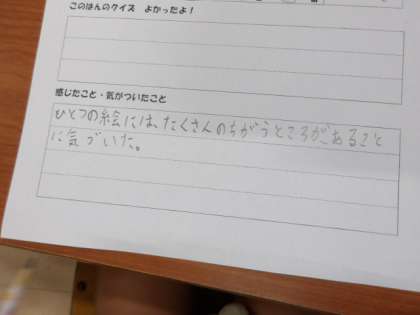 このほんのクイズ よかったよ！
感じたこと・気がついたこと
ひとつの絵には、たくさんのちがうところがあること
に気づいた。